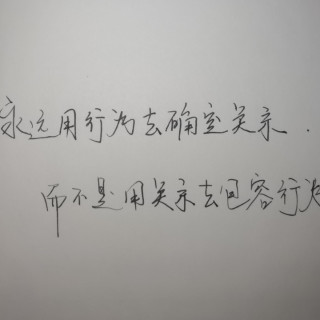 永远用行为去确定关系.
而不是用关系去包容行为